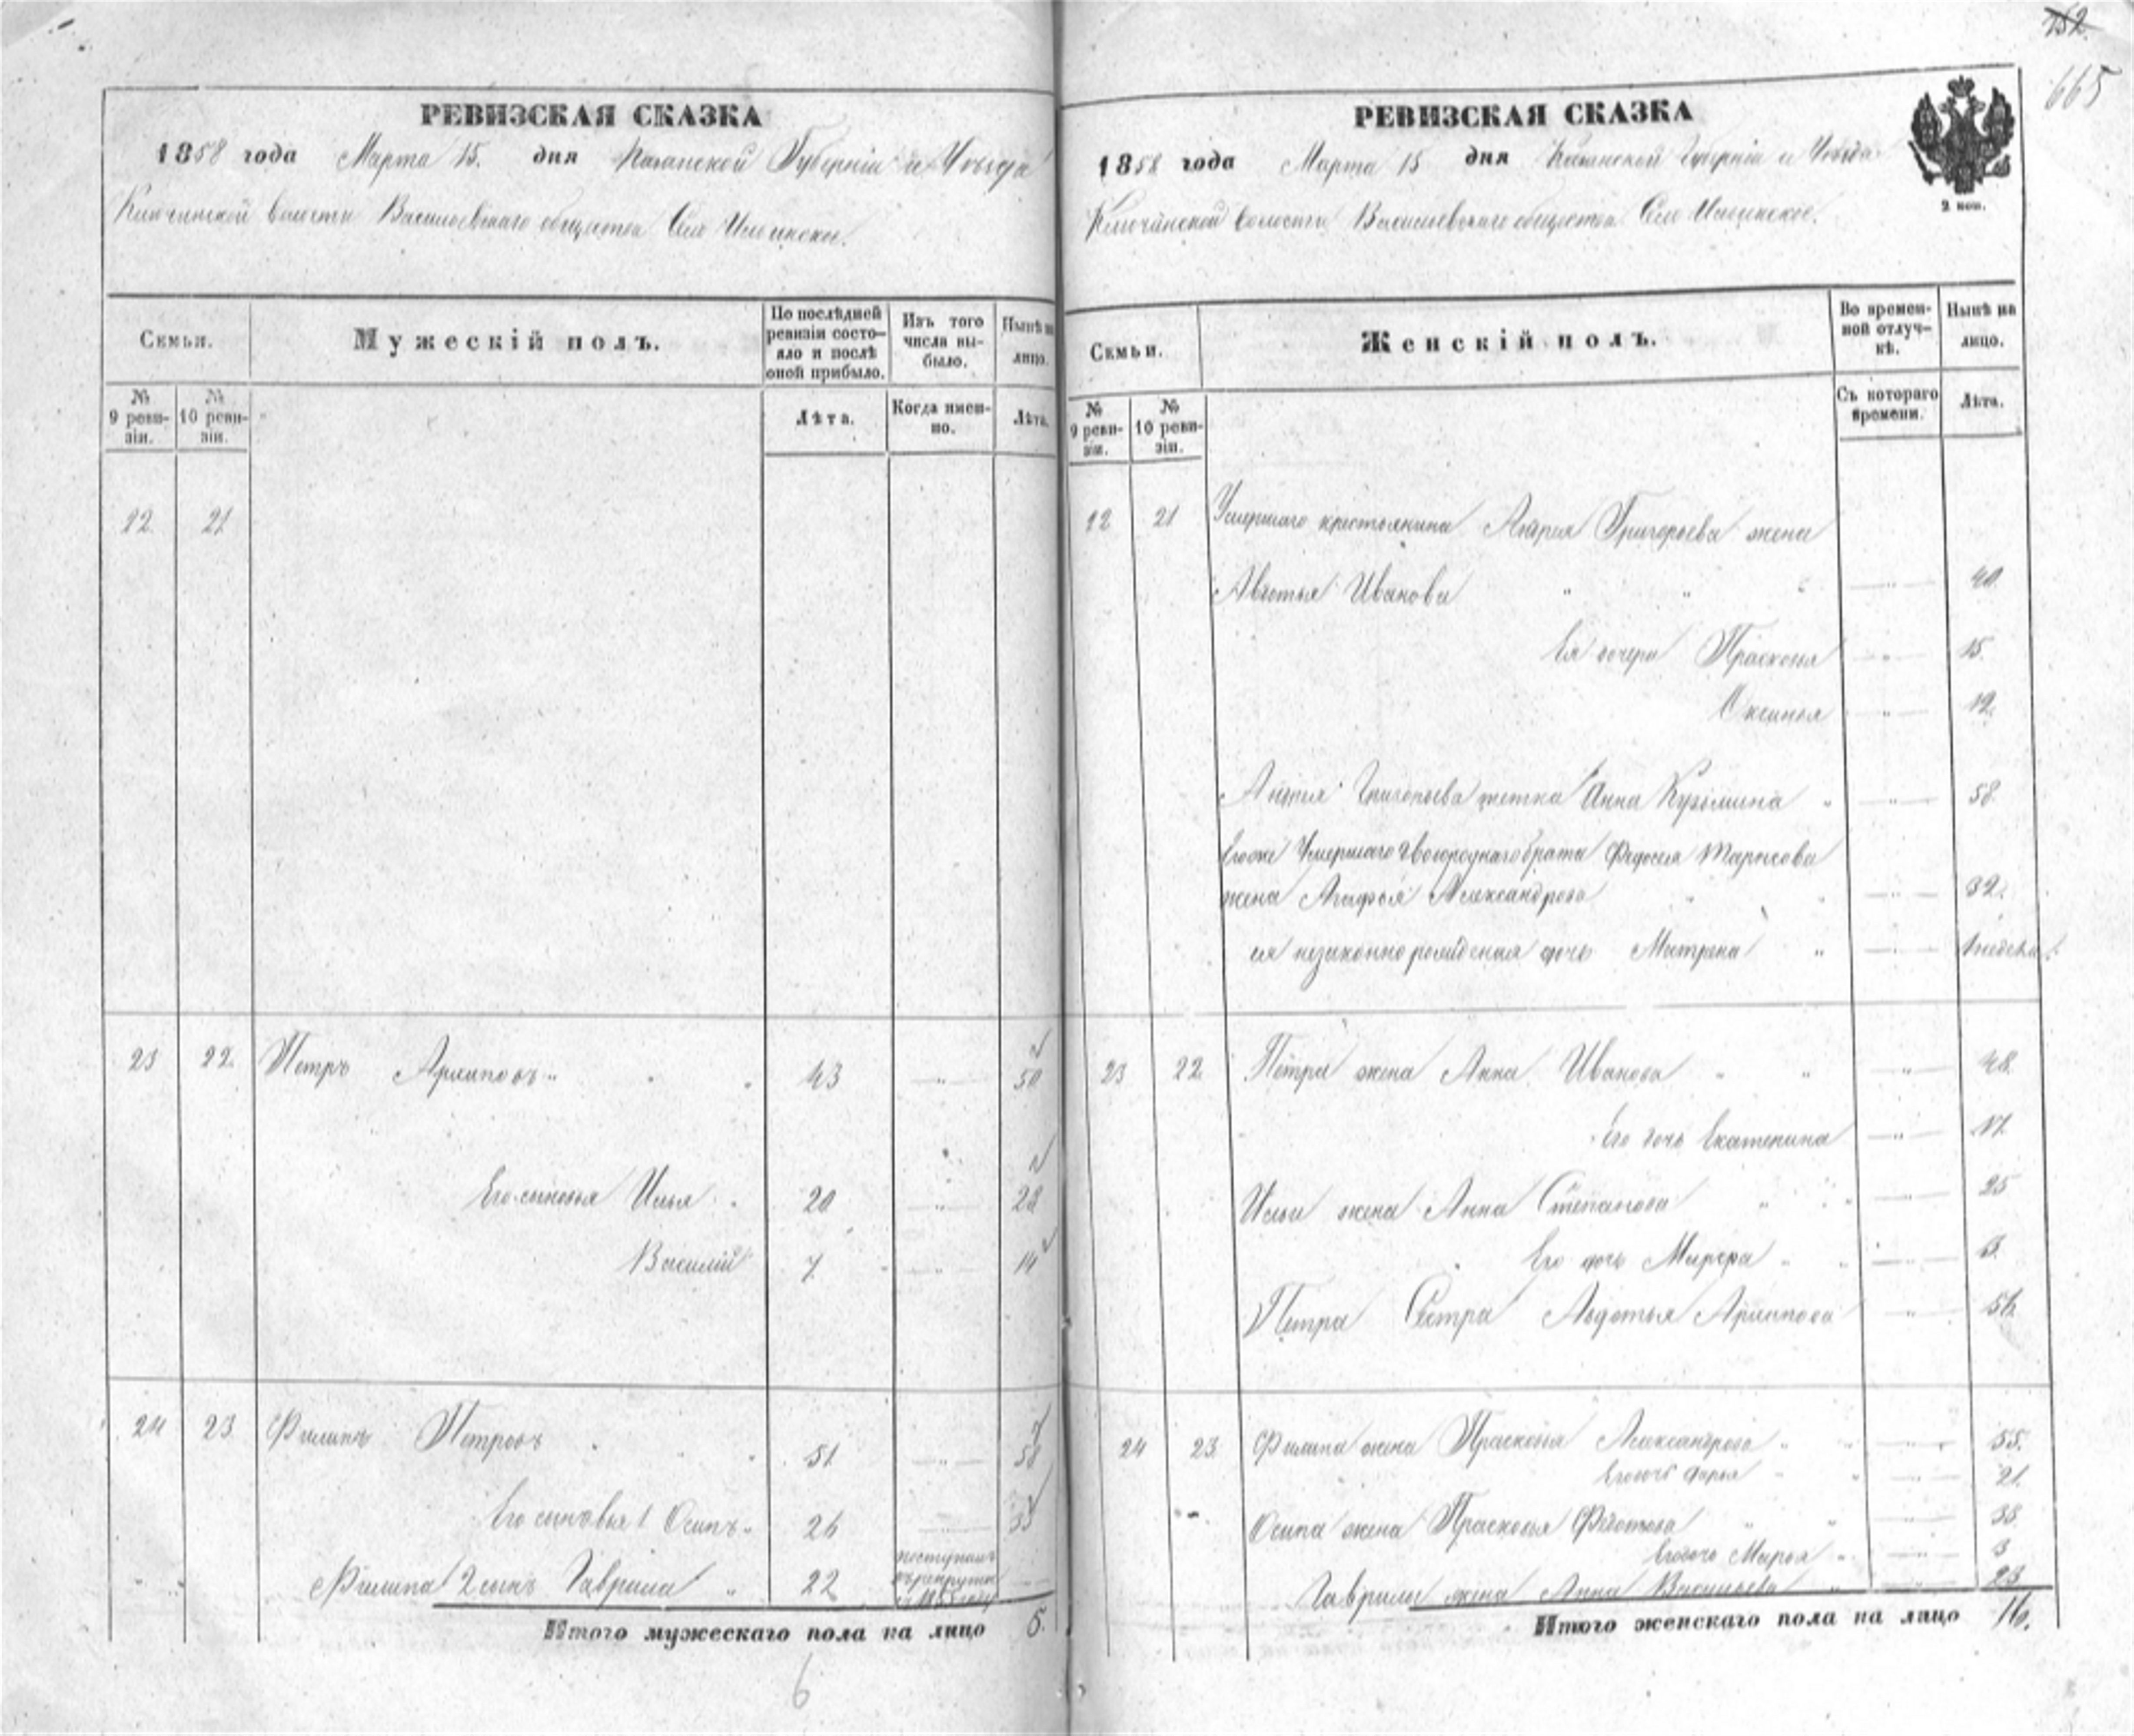 РЕВИЗСКАЯ СКАЗКА
1858 года Марта 15. дня Казанской Губерніи и Уѣзда
Ключинской волости Васильевскаго общества Села Ильинское.
Семьи.
Мужескій полъ.
По послѣдней ревизіи состояло и послѣ оной прибыло.
Изъ того числа выбыло.
Нынѣ на лицо.
№ 9 ревизіи.
№ 10 ревизіи.
Лѣта.
Когда именно.
Лѣта.
22. 21.
23 22. Петръ Архиповъ 43 50
Его сыновья Илья 20 28
Василій 7 14
24 23 Филипъ Петровъ 51 58
Его сыновья 1 Осипъ 26 33
Филипа 2 сынъ Гаврила 22 поступилъ въ рекруты въ 1855 году
Итого мужескаго пола на лицо 5.
6
752.
665
РЕВИЗСКАЯ СКАЗКА
1858 года Марта 15 дня Казанской Губерніи и Уѣзда
2 коп.
Ключинской волости Васильевскаго общества Села Ильинское.
Семьи.
Женскій полъ.
Во временной отлучкѣ.
Нынѣ на лицо.
№ 9 ревизіи.
№ 10 ревизіи.
Съ котораго времени.
Лѣта.
22 21 Умершаго крестьянина Андрея Григорьева жена
Авдотья Иванова 40.
Ея дочери Прасковья 15.
Оксинья 12.
Андрея Григорьева тетка Анна Кузьмина 58.
Его же Умершаго двоюроднаго брата Федосея
жена Агафья Александрова 32.
ея незаконно рожденая дочь Матрена
23 22. Петра жена Анна Иванова 48.
Его дочь Екатерина 17.
Ильи жена Анна Степанова 25
Его дочь Марфа 3.
Петра Сестра Авдотья Архипова 56.
24 23. Филипа жена Прасковья Александрова 55.
Его дочь Дарья 21.
Осипа жена Прасковья Федотова 38.
Его дочь Марья 3
Гаврилы жена Анна Васильева 23
Итого женскаго пола на лицо 16.